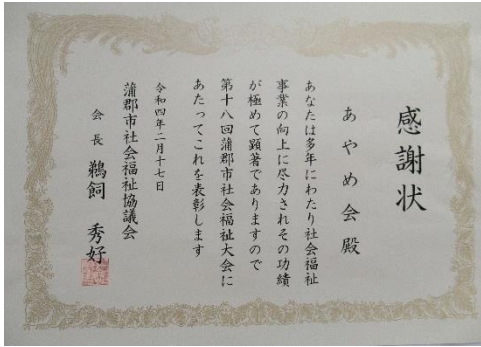 感謝状
あやめ会殿
あなたは多年にわたり社会福祉
事業の向上に尽力されその功績
が極めて顕著でありますので
第十八回蒲郡市社会福祉大会に
あたってこれを表彰します
令和四年二月十七日
蒲郡市社会福祉協議会
会長 鵜飼 秀好